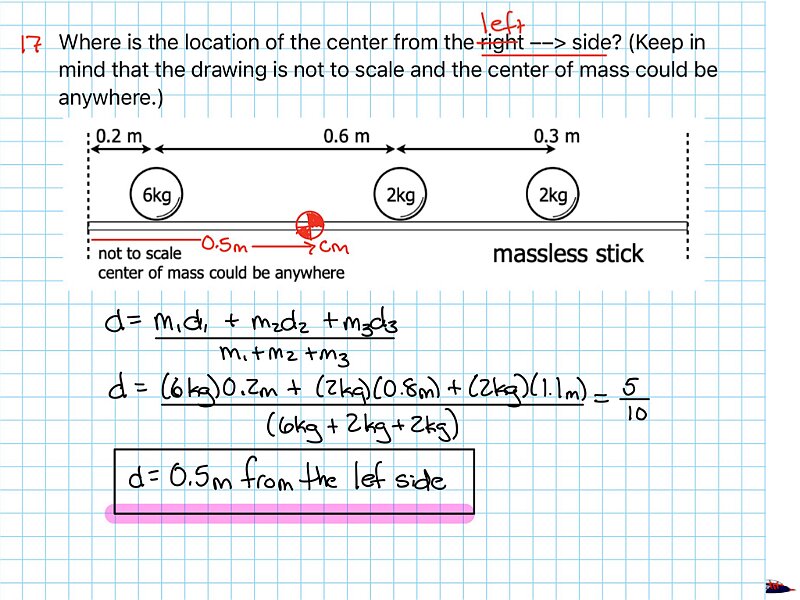 left
17 Where is the location of the center from the right --> side? (Keep in
mind that the drawing is not to scale and the center of mass could be
anywhere.)
0.2 m 0.6 m 0.3 m
6kg 2kg 2kg
0.5m cm
not to scale massless stick
center of mass could be anywhere
d = m₁d₁ + m₂d₂ + m₃d₃
m₁ + m₂ + m₃
d = (6kg)0.2m + (2kg)(0.8m) + (2kg)(1.1m) = 5
(6kg + 2kg + 2kg) 10
d = 0.5m from the lef side